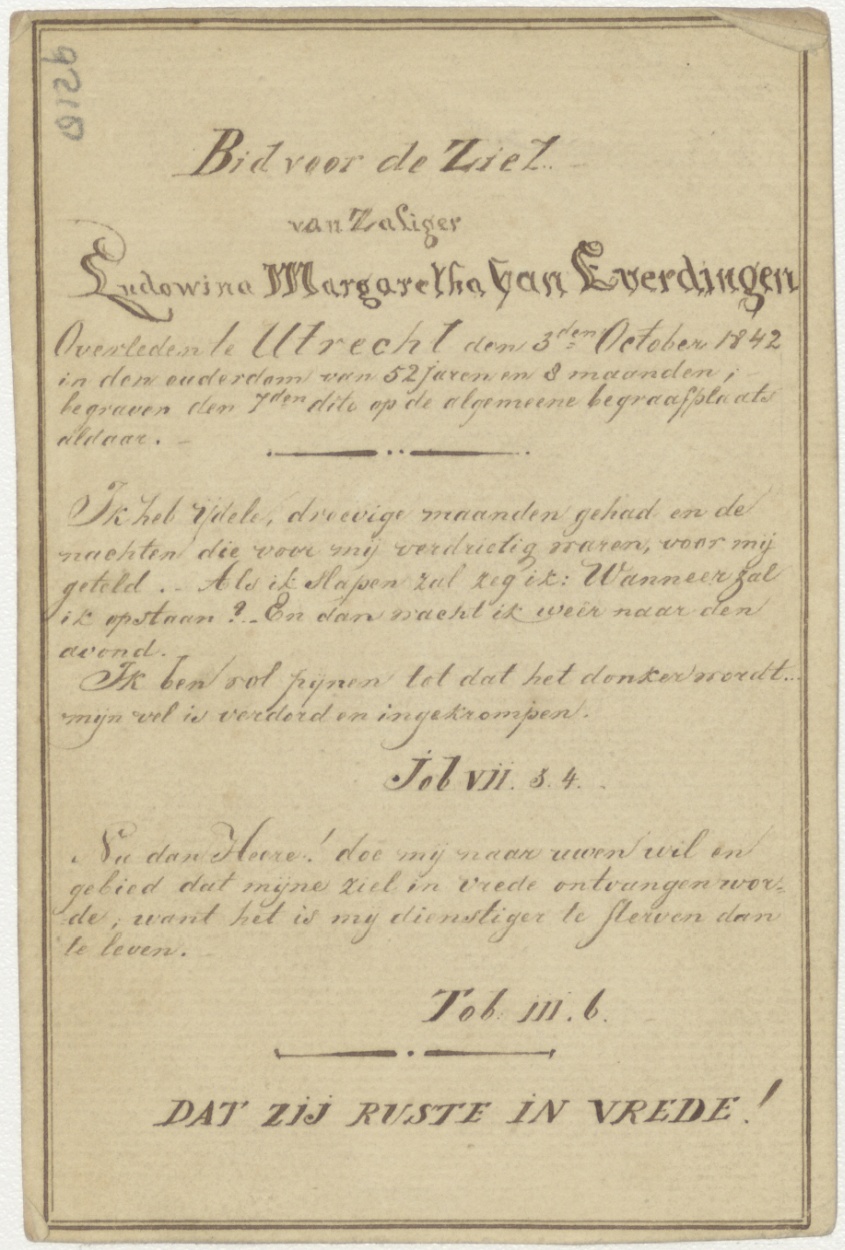 9510
Bid voor de Ziel
van Zaliger
Ludowina Margaretha van Everdingen
Overleden te Utrecht den 3den October 1842
in den ouderdom van 52 jaren en 8 maanden;
begraven den 7den dito op de algemeene begraafplaats
aldaar. -
Ik heb ijdele, droevige maanden gehad en de
nachten die voor mij verdrietig waren, voor mij
geteld. - Als ik slapen zal zeg ik: Wanneer zal
ik opstaan? - En dan wacht ik weêr naar den
avond.
Ik ben vol pijnen tot dat het donker wordt...
mijn vel is verdord en ingekrompen.
Job VII. 3. 4.
Nu dan Heere! doe mij naar uwen wil en
gebied dat mijne ziel in vrede ontvangen wor-
de, want het is mij dienstiger te sterven dan
te leven.
Tob. III. 6.
DAT ZIJ RUSTE IN VREDE!